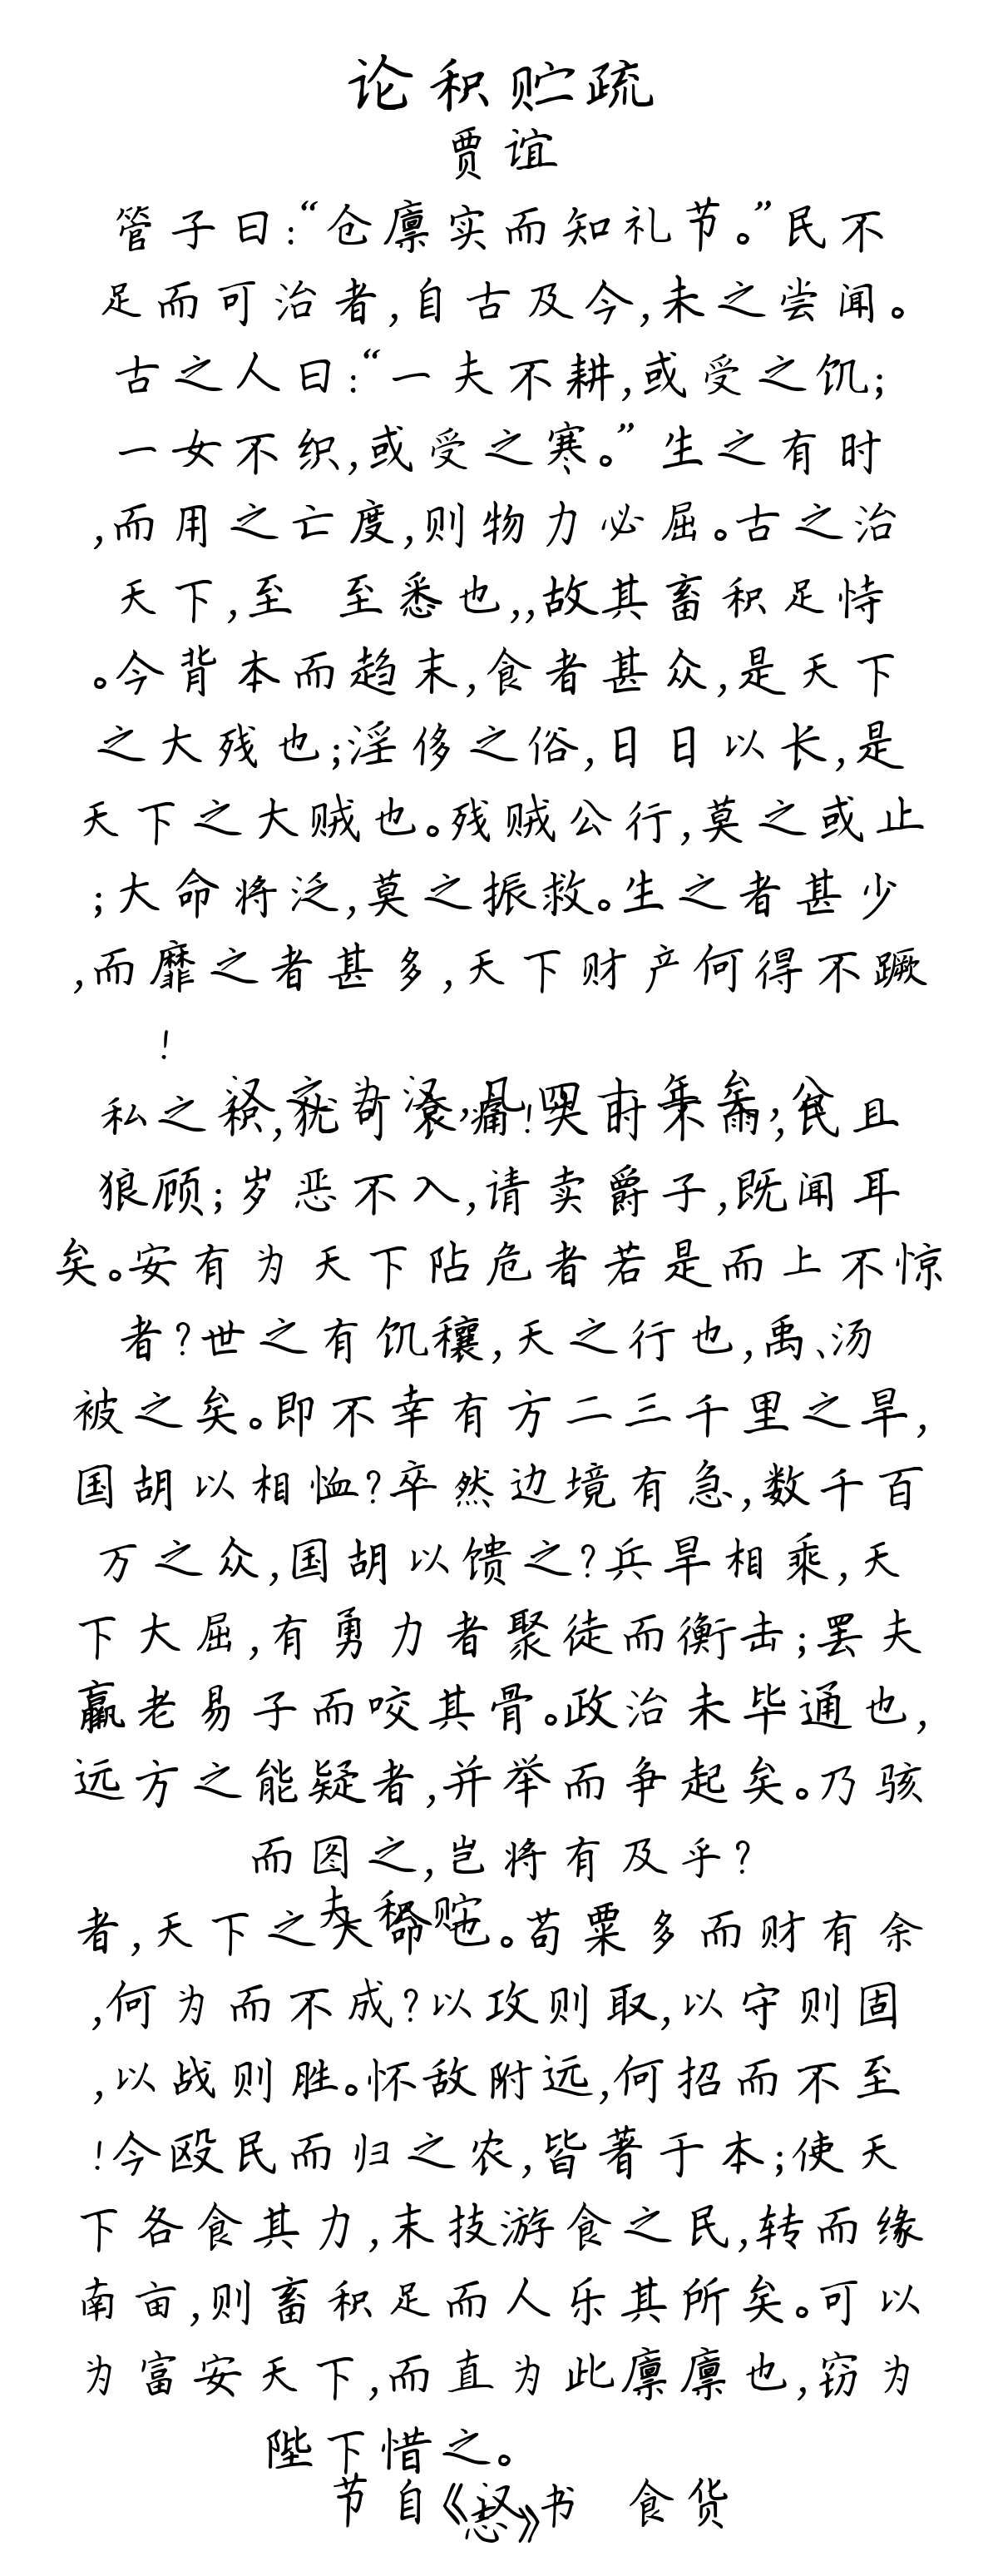 论积贮疏
贾谊
管子曰:“仓廪实而知礼节。”民不
足而可治者,自古及今,未之尝闻。
古之人曰:“一夫不耕,或受之饥;
一女不织,或受之寒。”生之有时
,而用之亡度,则物力必屈。古之治
天下,至 至悉也,,故其畜积足恃
。今背本而趋末,食者甚众,是天下
之大残也;淫侈之俗,日日以长,是
天下之大贼也。残贼公行,莫之或止
;大命将泛,莫之振救。生之者甚少
,而靡之者甚多,天下财产何得不蹶
!
汉之为汉,几四十年矣,公
私之积,犹可哀痛!失时不雨,民且
狼顾;岁恶不入,请卖爵子,既闻耳
矣。安有为天下阽危者若是而上不惊
者?世之有饥穰,天之行也,禹、汤
被之矣。即不幸有方二三千里之旱,
国胡以相恤?卒然边境有急,数千百
万之众,国胡以馈之?兵旱相乘,天
下大屈,有勇力者聚徒而衡击;罢夫
羸老易子而咬其骨。政治未毕通也,
远方之能疑者,并举而争起矣。乃骇
而图之,岂将有及乎?
夫积贮
者,天下之大命也。苟粟多而财有余
,何为而不成?以攻则取,以守则固
,以战则胜。怀敌附远,何招而不至
!今殴民而归之农,皆著于本;使天
下各食其力,末技游食之民,转而缘
南亩,则畜积足而人乐其所矣。可以
为富安天下,而直为此廪廪也,窃为
陛下惜之。
节自《汉书 食货
志》